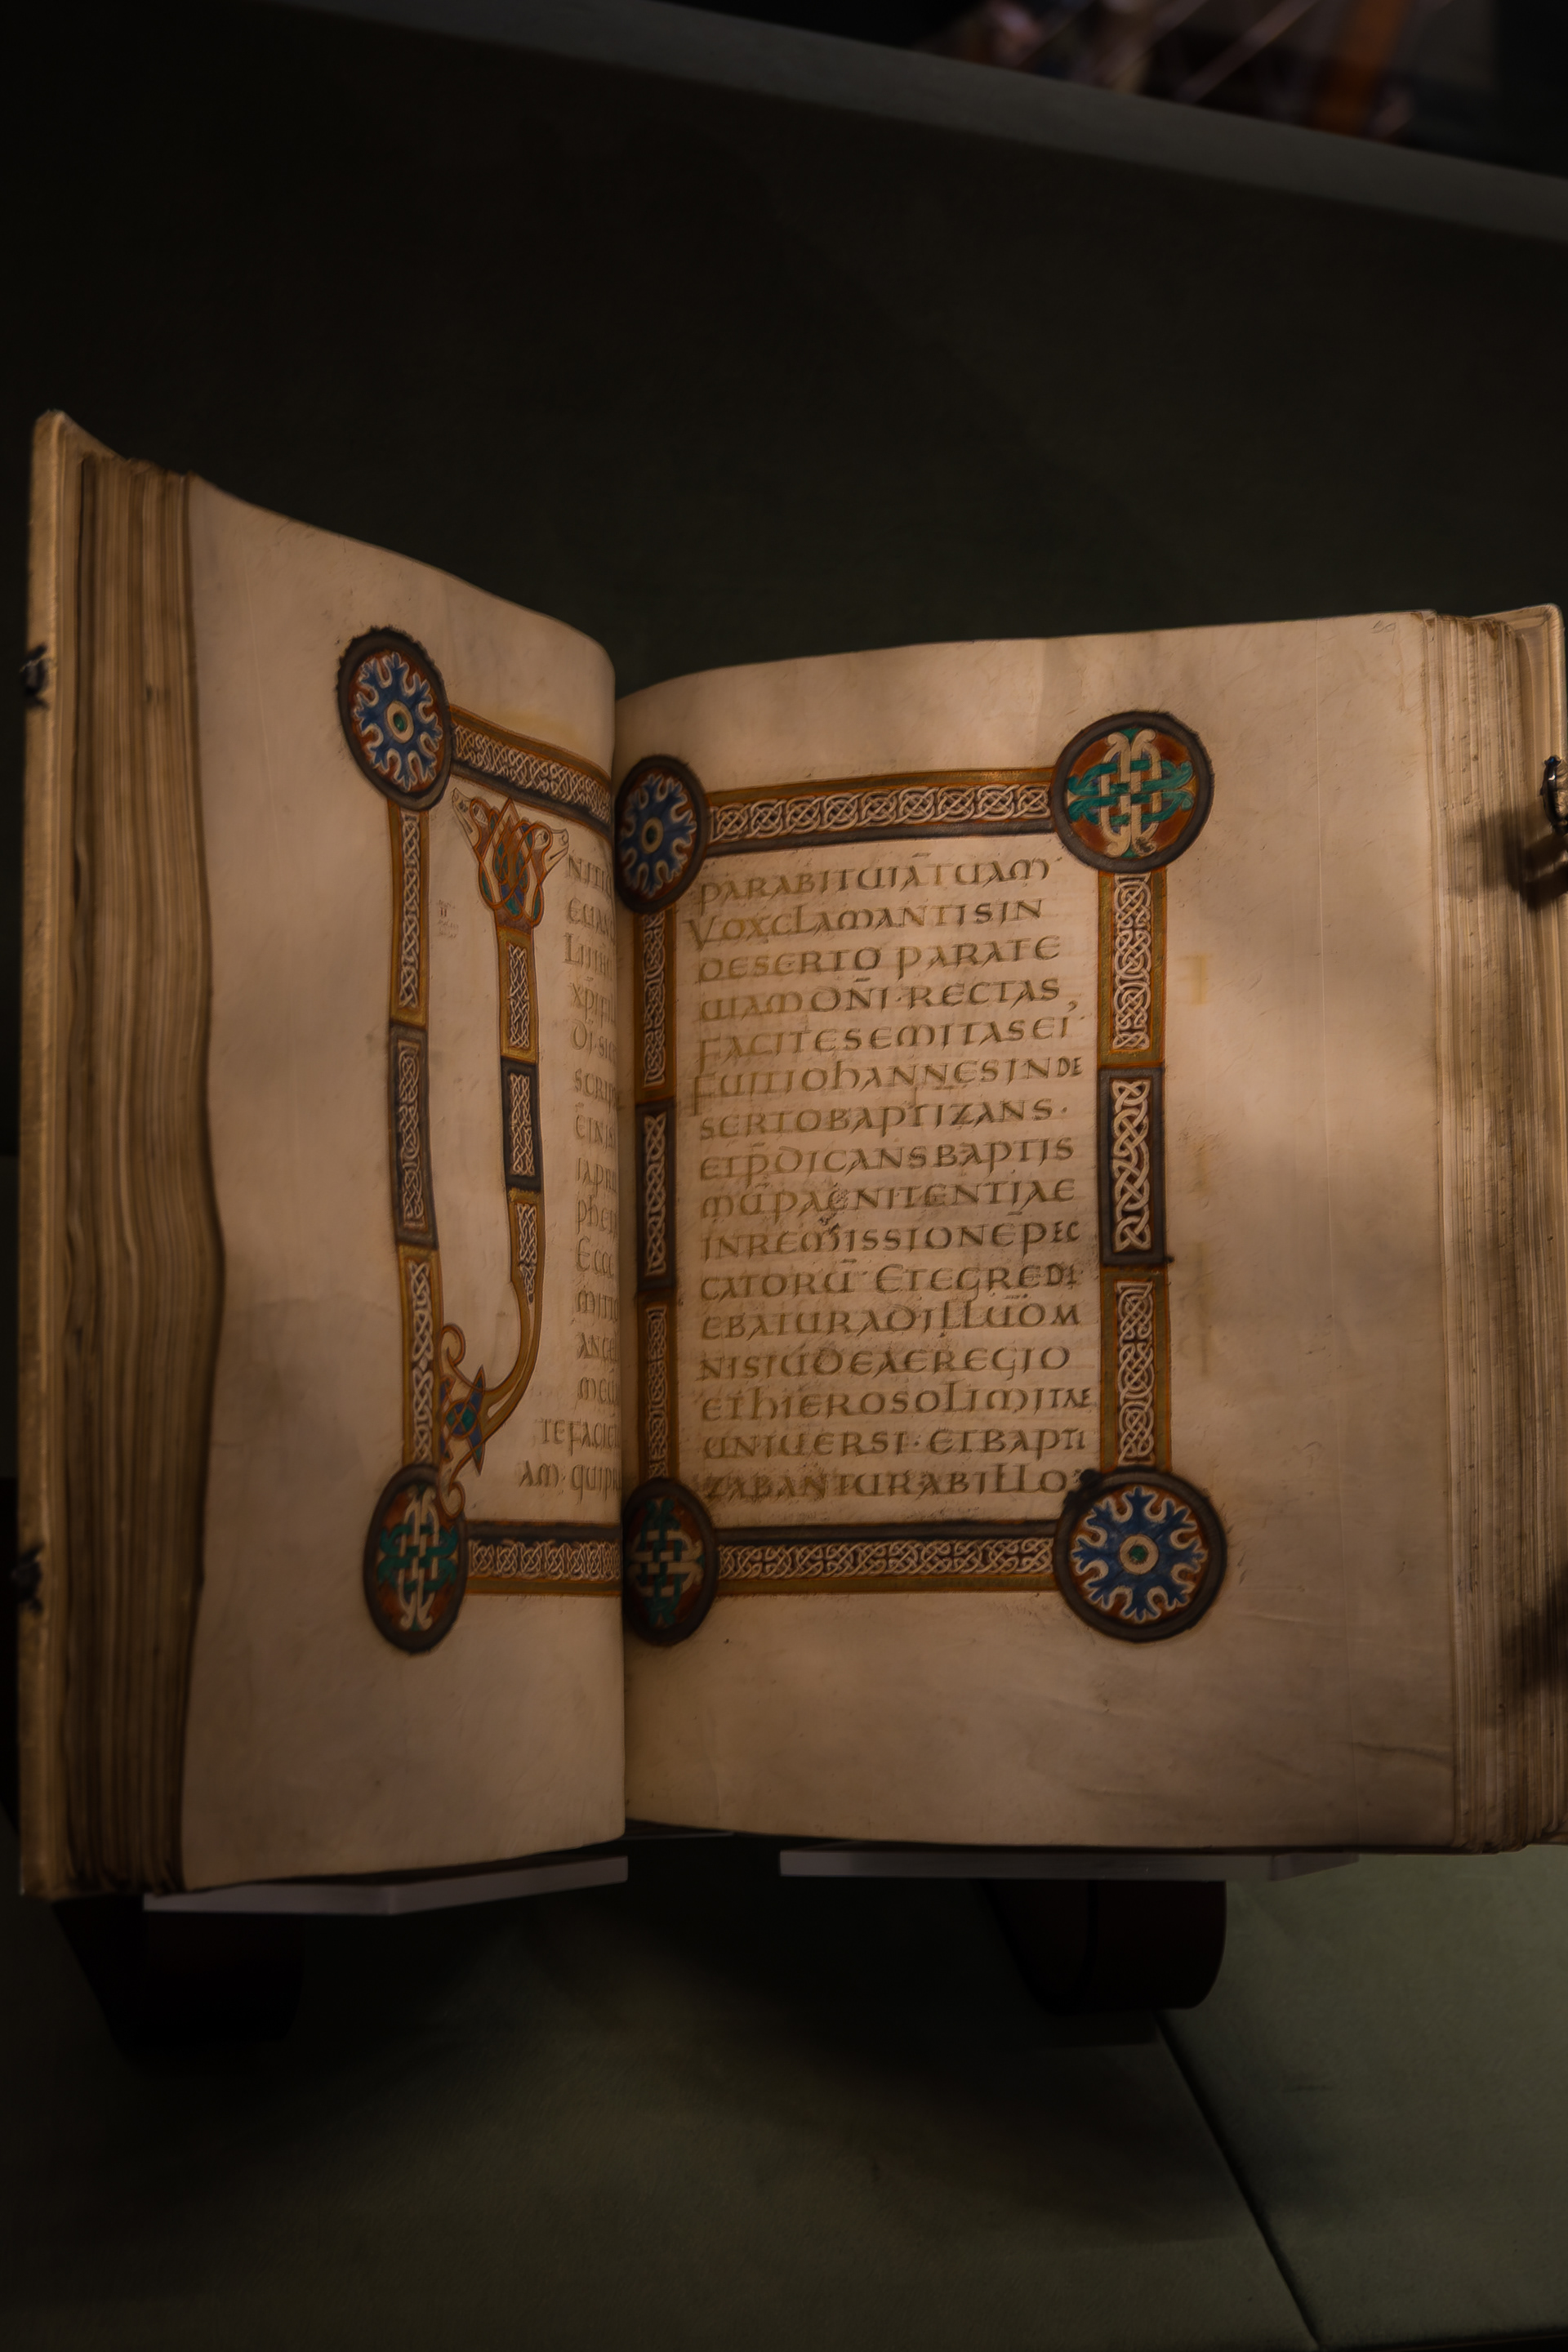 NITIU
EUAN
XPI
SCRIP
PHE
ECCE
MITTO
ANGE
MEU
TE FACIE
AM · QUIP
50
PARABIT UIĀ TUAM
VOX CLAMANTIS IN
DESERTO PARATE
UIAM DN̄I · RECTAS
FACITE SEMITAS EI'
FUIT IOHANNES IN DE
SERTO BAPTIZANS ·
ET P̄DICANS BAPTIS
MŪ PAENITENTIAE
IN REMISSIONĒ PEC
CATORŪ ET EGREDI
EBATUR AD ILLŪ OM
NIS IUDEAE REGIO
ET HIEROSOLIMITAE
UNIUERSI · ET BAPTI
ZABANTUR AB ILLO